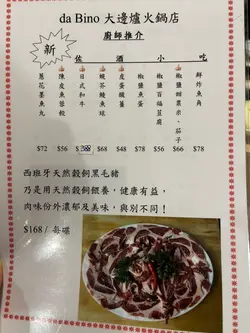 da Bino 大邊爐火鍋店
廚師推介
新
佐酒小吃
蔥花墨魚丸
陳皮魚
日式和牛
椒鹽
椒鹽百福豆腐
椒鹽甜粟米、茄子
鮮炸魚角
$72 $56 $68 $48 $78 $56 $66 $78
西班牙天然穀飼黑毛豬
乃是用天然穀飼餵養，健康有益，
肉味份外濃郁及美味，與別不同！
$168 / 每碟